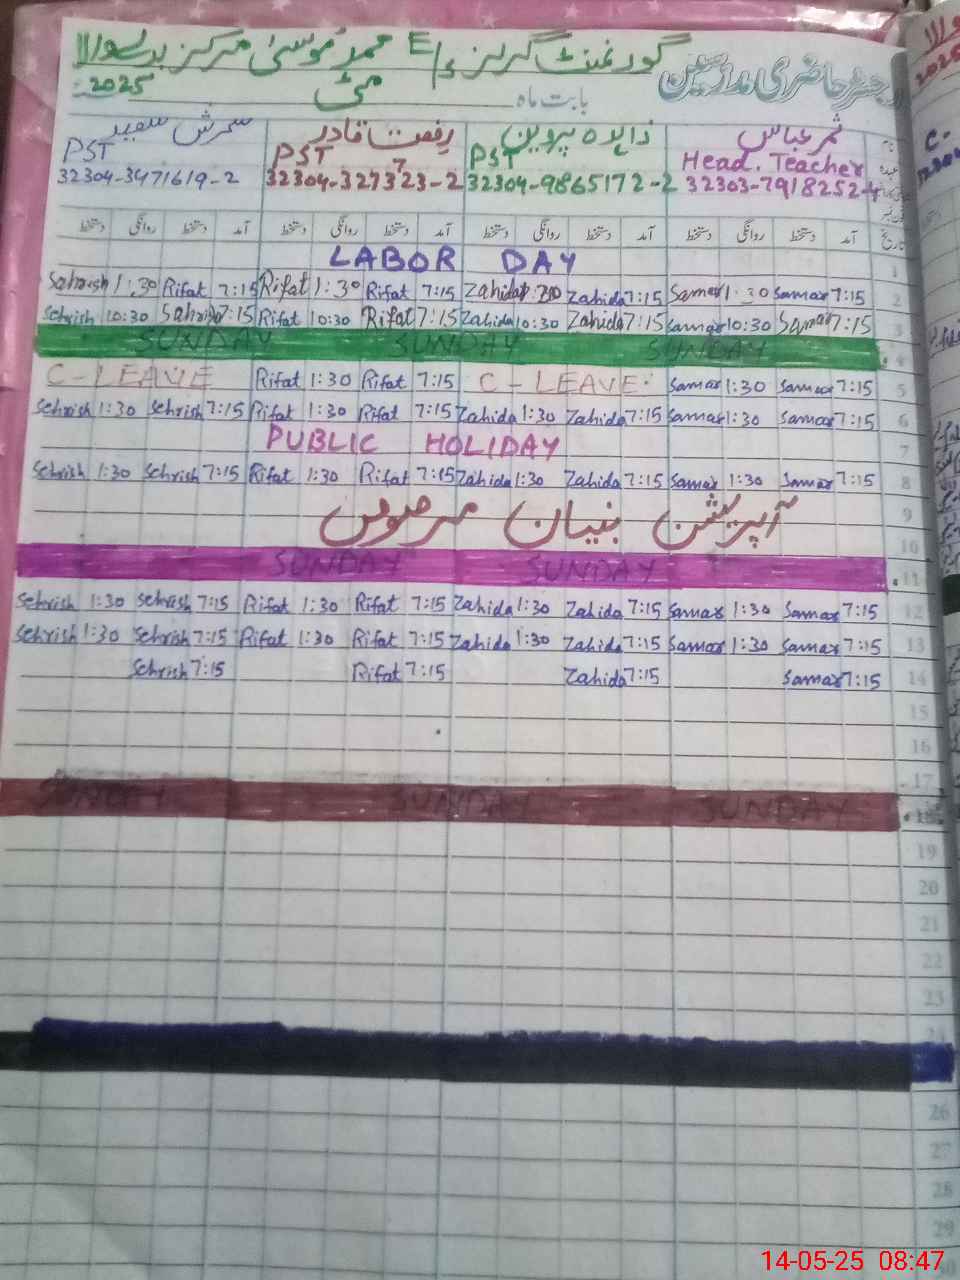 رجسٹر حاضری مدرسین
گورنمنٹ گرلز E/S محمد موسیٰ مرکز
بابت ماہ مئی 2025
ثمر عباس زاہدہ پروین رفعت قادر سحرش سفیر
Head. Teacher PST PST PST
32303-7918252-4 32304-9865172-2 32304-327323-2 7 32304-3471619-2
تاریخ آمد دستخط روانگی دستخط آمد دستخط روانگی دستخط آمد دستخط روانگی دستخط آمد دستخط روانگی دستخط
LABOR DAY 1
Sahrish 1:30 Rifat 7:15 Rifat 1:30 Rifat 7:15 Zahida 1:30 Zahida 7:15 Samar 1:30 Samar 7:15 2
Sehrish 10:30 Sahrish 7:15 Rifat 10:30 Rifat 7:15 Zahida 10:30 Zahida 7:15 Samar 10:30 Samar 7:15 3
SUNDAY SUNDAY SUNDAY 4
C-LEAVE Rifat 1:30 Rifat 7:15 C-LEAVE Samar 1:30 Samar 7:15 5
Sehrish 1:30 Sehrish 7:15 Rifat 1:30 Rifat 7:15 Zahida 1:30 Zahida 7:15 Samar 1:30 Samar 7:15 6
PUBLIC HOLIDAY 7
Sehrish 1:30 Sehrish 7:15 Rifat 1:30 Rifat 7:15 Zahida 1:30 Zahida 7:15 Samar 1:30 Samar 7:15 8
آپریشن بنیان مرصوص 9
10
SUNDAY SUNDAY 11
Sehrish 1:30 Sehrish 7:15 Rifat 1:30 Rifat 7:15 Zahida 1:30 Zahida 7:15 Samar 1:30 Samar 7:15 12
Sehrish 1:30 Sehrish 7:15 Rifat 1:30 Rifat 7:15 Zahida 1:30 Zahida 7:15 Samar 1:30 Samar 7:15 13
Sehrish 7:15 Rifat 7:15 Zahida 7:15 Samar 7:15 14
15
16
17
SUNDAY SUNDAY SUNDAY 18
19
20
21
22
23
26
27
28
29
30
14-05-25 08:47